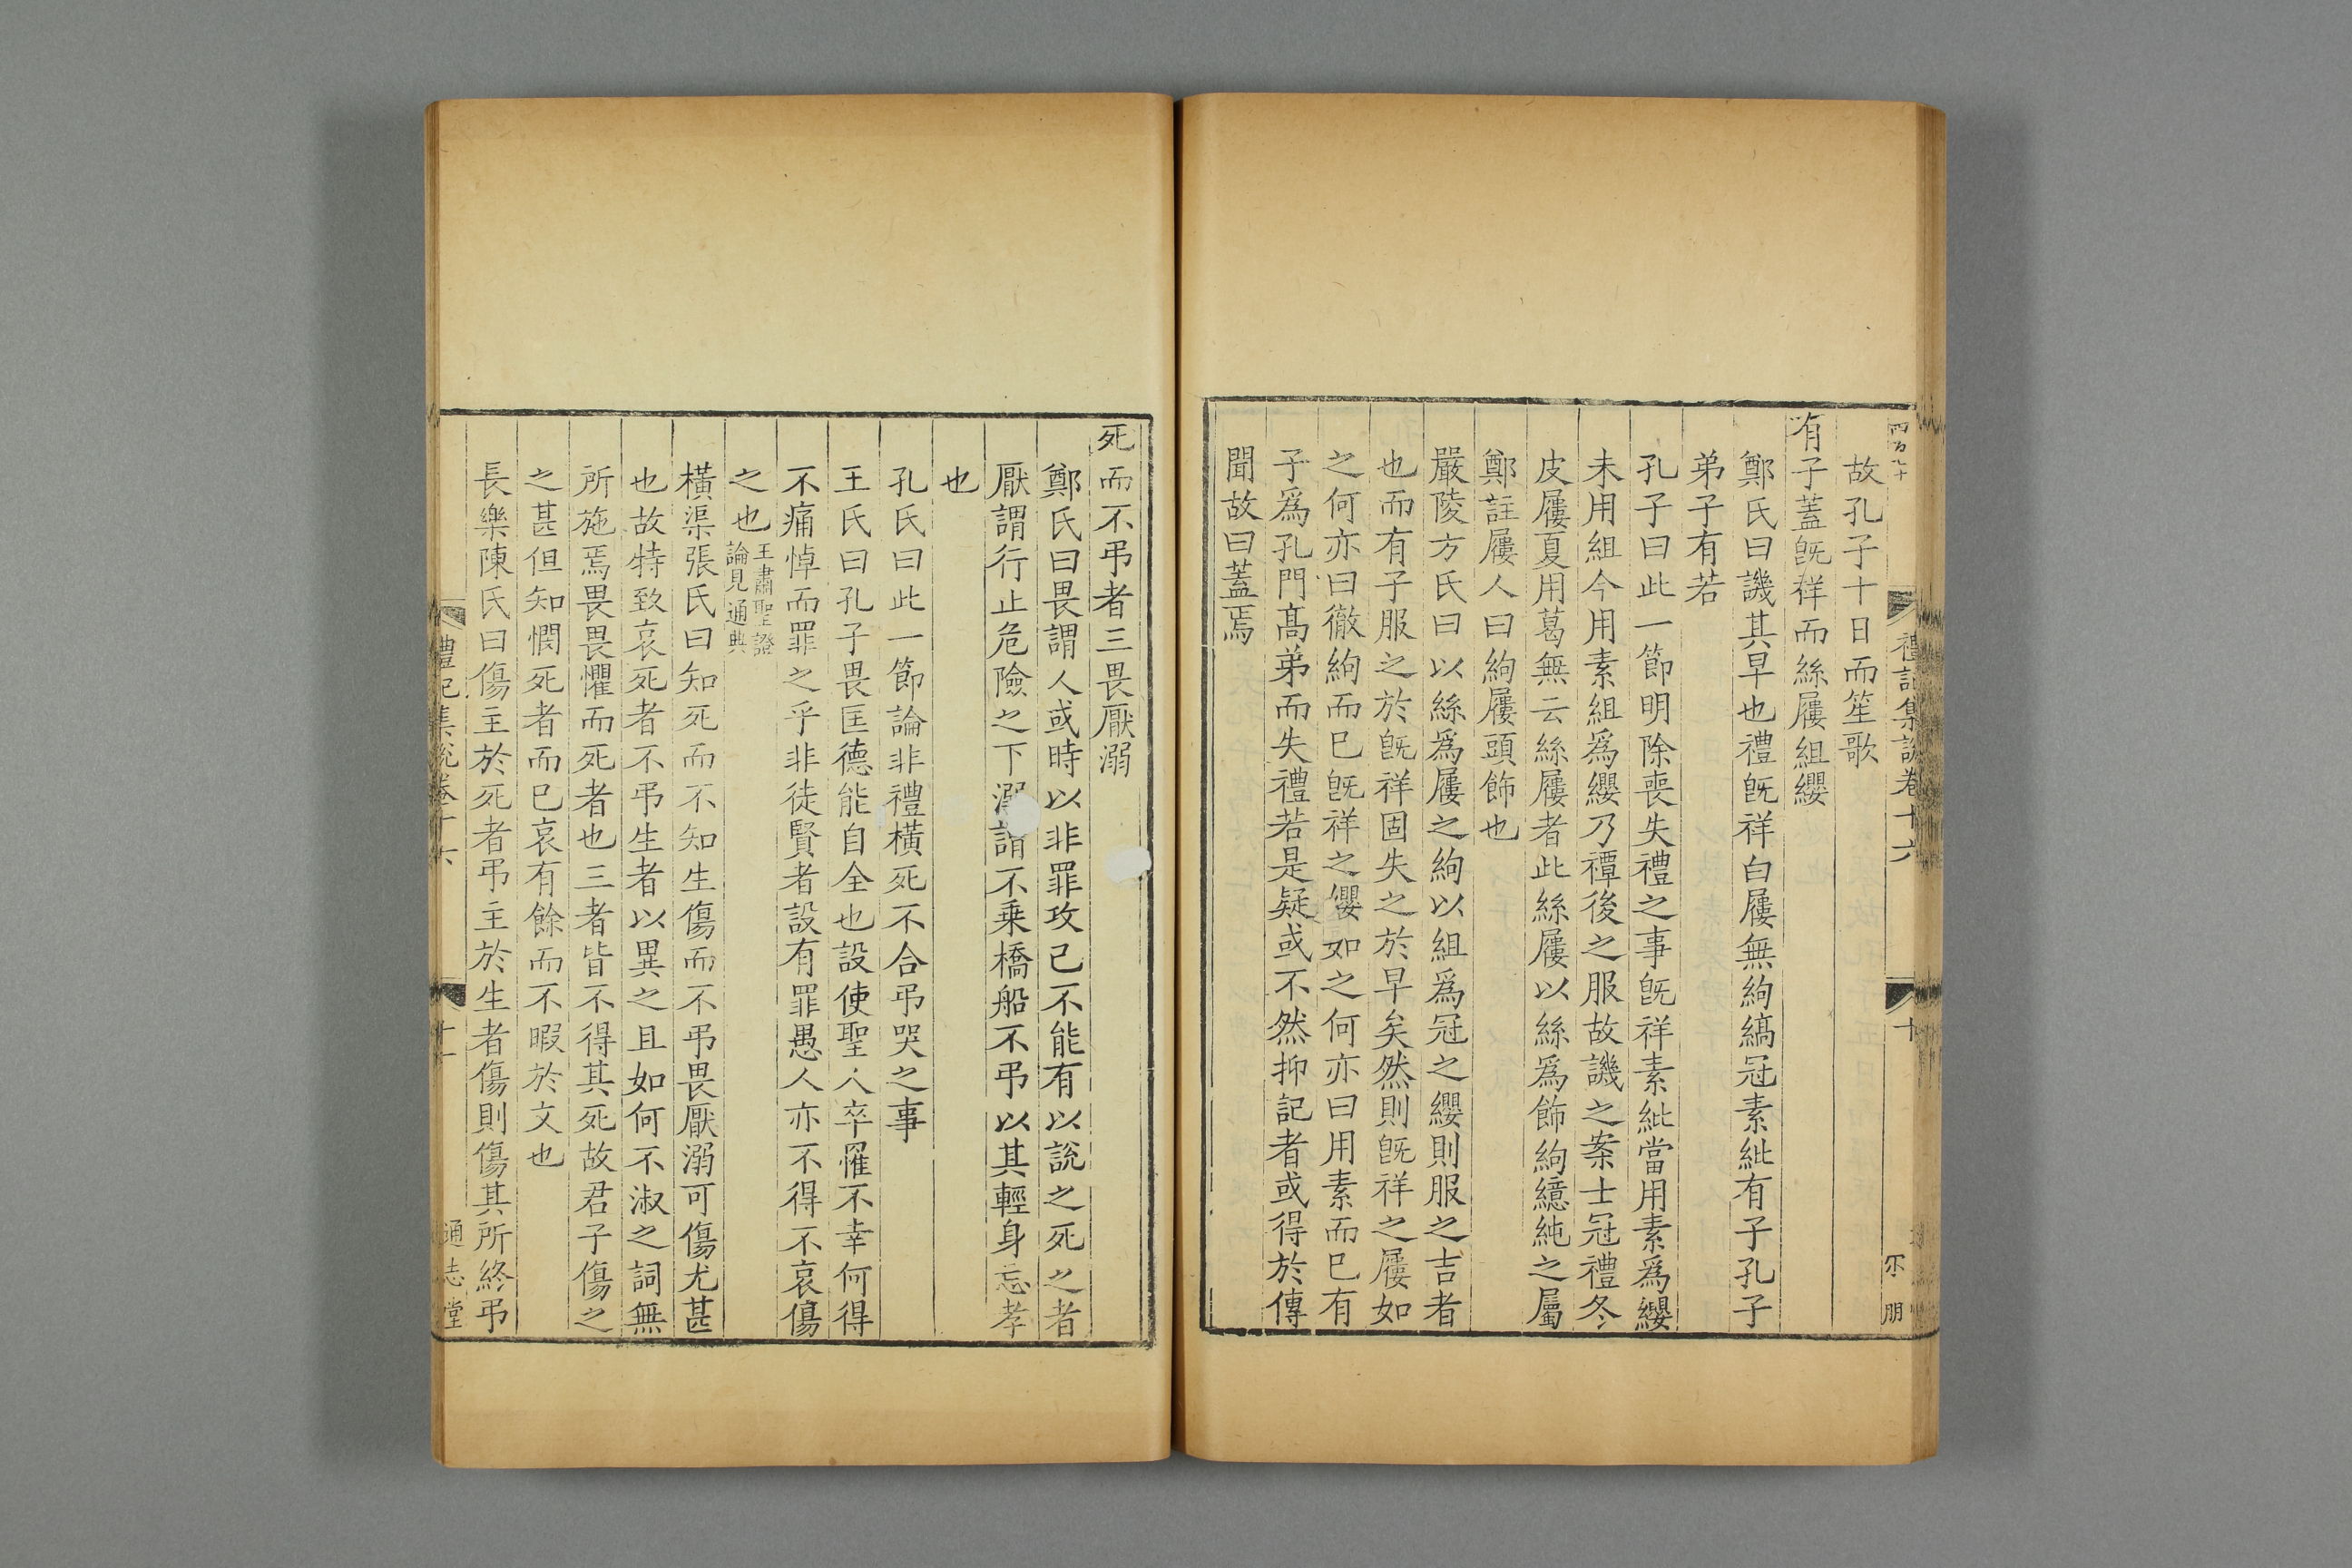 禮記集說卷十六
十
朋
故孔子十日而笙歌
有子蓋旣祥而絲屨組纓
鄭氏曰譏其早也禮旣祥白屨無絇縞冠素紕有子孔子
弟子有若
孔子曰此一節明除喪失禮之事旣祥素紕當用素爲纓
未用組今用素組爲纓乃禫後之服故譏之案士冠禮冬
皮屨夏用葛無云絲屨者此絲屨以絲爲飾絇繶純之屬
鄭註屨人曰絇屨頭飾也
嚴陵方氏曰以絲爲屨之絇以組爲冠之纓則服之吉者
也而有子服之於旣祥固失之於早矣然則旣祥之屨如
之何亦曰徹絇而巳旣祥之纓如之何亦曰用素而巳有
子爲孔門髙弟而失禮若是疑或不然抑記者或得於傳
聞故曰蓋焉
死而不弔者三畏厭溺
鄭氏曰畏謂人或時以非罪攻己不能有以說之死之者
厭謂行止危險之下溺謂不乗橋船不弔以其輕身忘孝
也
孔氏曰此一節論非禮橫死不合弔哭之事
王氏曰孔子畏匡德能自全也設使聖人卒罹不幸何得
不痛悼而罪之乎非徒賢者設有罪愚人亦不得不哀傷
之也王肅聖證論見通典
橫渠張氏曰知死而不知生傷而不弔畏厭溺可傷尤甚
也故特致哀死者不弔生者以異之且如何不淑之詞無
所施焉畏畏懼而死者也三者皆不得其死故君子傷之
之甚但知憫死者而巳哀有餘而不暇於文也
長樂陳氏曰傷主於死者弔主於生者傷則傷其所終弔
禮記集說卷十六
十一
通志堂